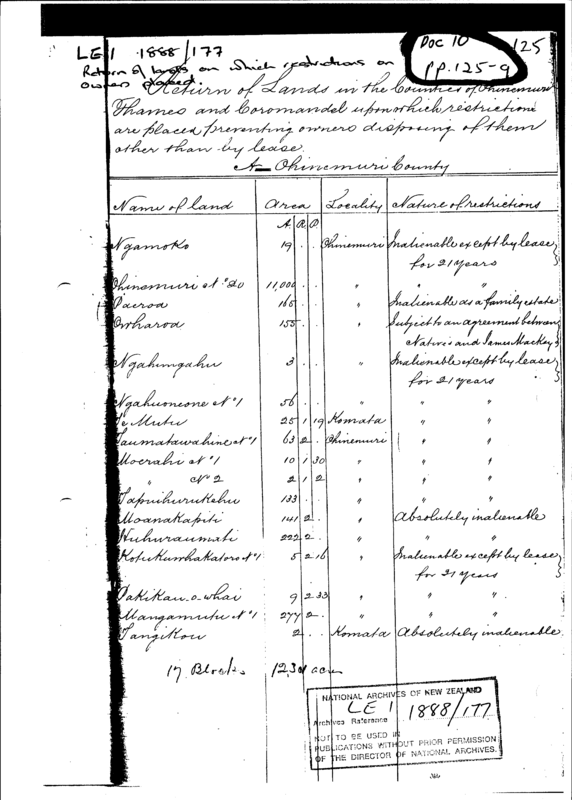 LE 1 1888/177
Doc 10
pp. 125-9
125
Return of lands on which restrictions on
owners placed.
Return of Lands in the Counties of Ohinemuri
Thames and Coromandel upon which restrictions
are placed preventing owners disposing of them
other than by lease.
A— Ohinemuri County
Name of land Area Locality Nature of restrictions
A R P
Ngamoko 19 . . Ohinemuri Inalienable except by lease
for 21 years
Ohinemuri No 20 11,000 . . " " "
Paeroa 165 . . " Inalienable as a family estate
Owharoa 155 . . " Subject to an agreement between
Natives and James Mackay
3 . . " Inalienable except by lease
for 21 years
No 1 56 . . " " "
Te Mutu 25 1 19 Komata " "
Taumatawahine No 1 63 2 . Ohinemuri " "
Moerahi No 1 10 1 30 " " "
" No 2 2 1 2 " " "
133 . . " " "
Moanakapiti 141 2 . " Absolutely inalienable
222 2 . " " "
No 1 5 2 16 " Inalienable except by lease
for 21 years
9 2 33 " " "
Mangamutu No 1 277 2 . " " "
Tangikou 2 . . Komata Absolutely inalienable
17 Blocks 12,301 acres
NATIONAL ARCHIVES OF NEW ZEALAND
LE 1 1888/177
Archives Reference
NOT TO BE USED IN
PUBLICATIONS WITHOUT PRIOR PERMISSION
OF THE DIRECTOR OF NATIONAL ARCHIVES.